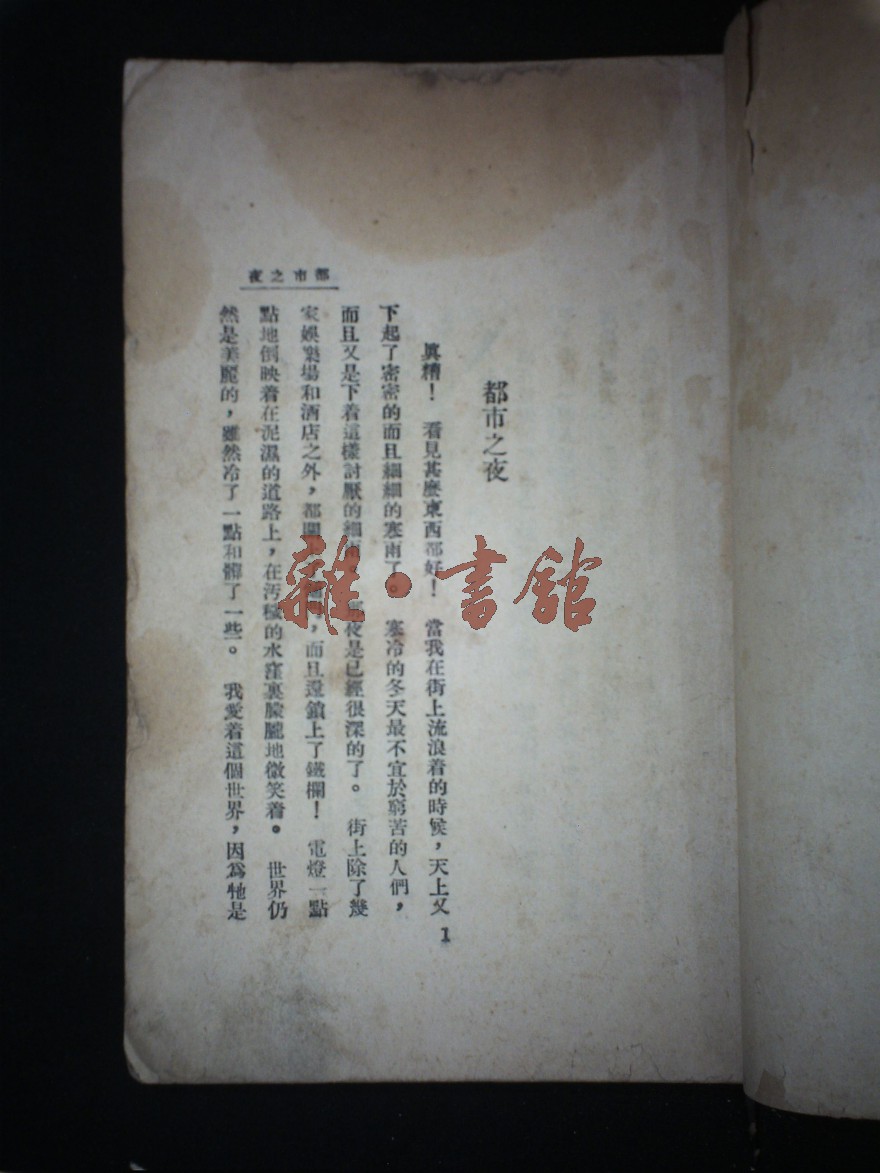 都市之夜
都市之夜
真糟！ 看見甚麼東西都好！ 當我在街上流浪着的時候，天上又
下起了密密的而且細細的寒雨了。 寒冷的冬天最不宜於窮苦的人們，
而且又是下着這樣討厭的細雨。 夜是已經很深的了。 街上除了幾
家娛樂場和酒店之外，都關 ，而且還鎖上了鐵欄！ 電燈一點
點地倒映着在泥濕的道路上，在汚穢的水窪裏朦朧地微笑着。 世界仍
然是美麗的，雖然冷了一點和髒了一些。 我愛着這個世界，因爲牠是
1
雜·書館